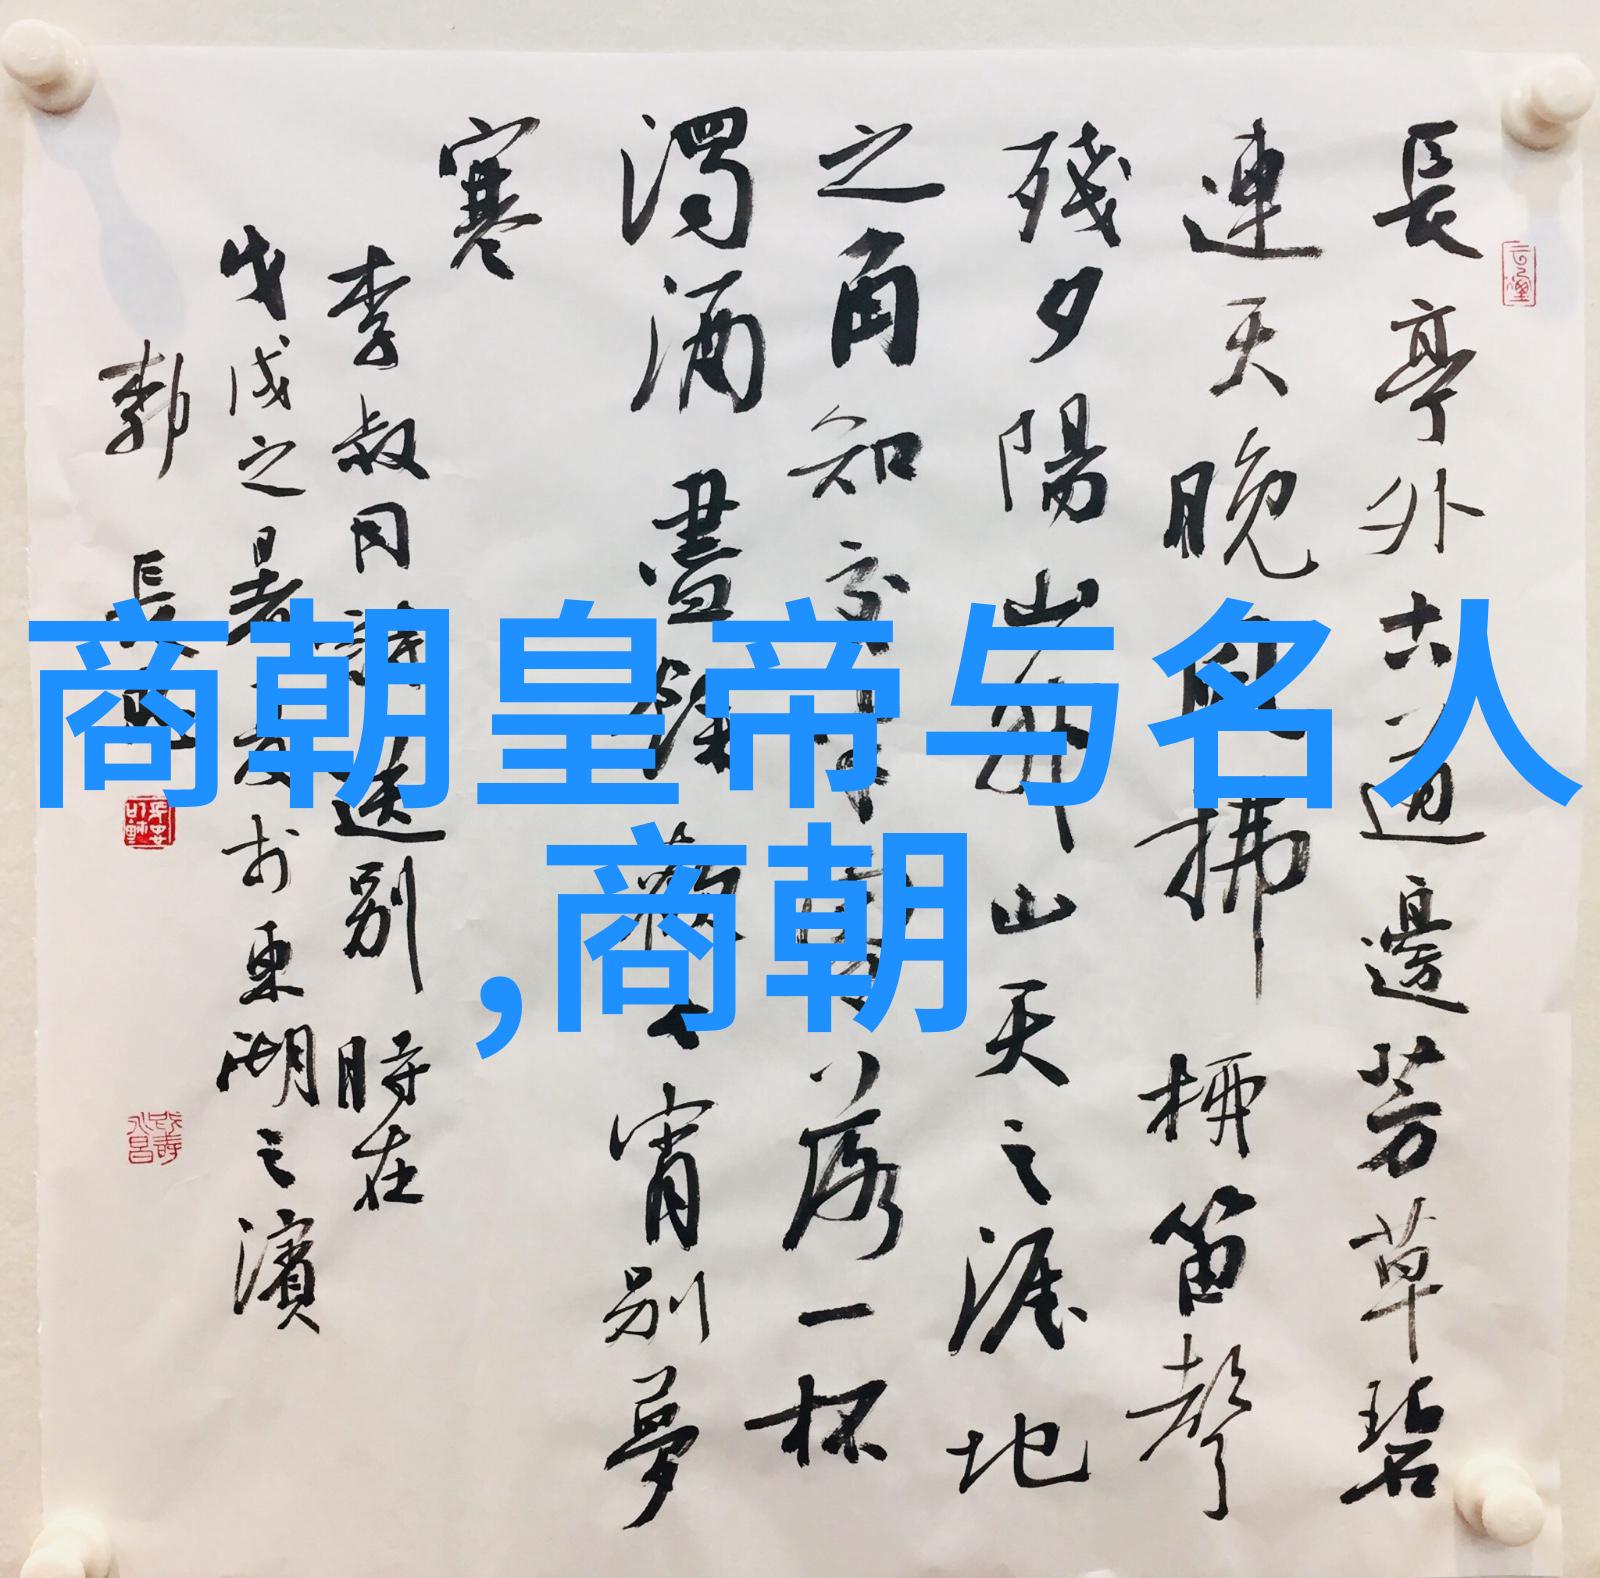 商朝皇帝与名人
,商朝
長亭外古道邊芳草碧
連天晚風拂柳笛聲
殘夕陽山外山天之涯地
之角知交半零落一杯
濁酒盡餘歡今宵別夢
寒
李叔同詩送別 時在
戊戌之暑 於東湖之濱
郭 長